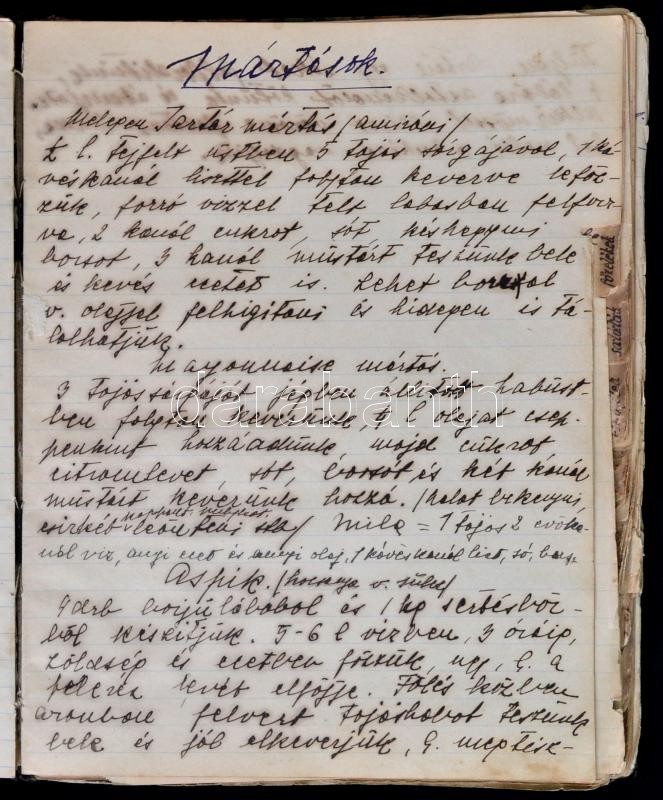 Mártások.
Melegen Tartár mártás (amiróni)
½ l. tejfelt üstben 5 tojás sárgájával, 1 ká-
véskanál liszttel folyton keverve lefőz-
zük, forró vizzel telt lábasban felfőz-
va, 2 kanál cukrot, sót, késhegynyi
borsot, 3 kanál mustárt teszünk bele
és kevés ecetet is. Lehet borral
v. olajjal felhigitani és hidegen is tá-
lalhatjuk.
Mayonnaise mártás.
3 tojássárgáját jégben állitott habüst-
ben folyton keverünk, ½ l olajat csep-
penkint hozzáadunk, majd cukrot,
citromlevet, sót, borsot és két kanál
mustárt keverünk hozzá. (halat
csirkét leönteni stb) = 1 tojás 2 evőka-
nál viz, anyi ecet és anyi olaj, 1 kávéskanál liszt, só, bors.
Aspik. (kocsonya v. sülze)
4 drb borjúlábból és 1 kg sertésbőr-
ből készitjük. 5-6 l vizben, 3 óráig,
zöldség és ecetben főzzük, ugy, h. a
felére levét elfőjje. Főlés közben
azonban felvert tojáshabot teszünk
bele és jól elkeverjük, h. megtisz-
főzelékek
saláták
darabanth